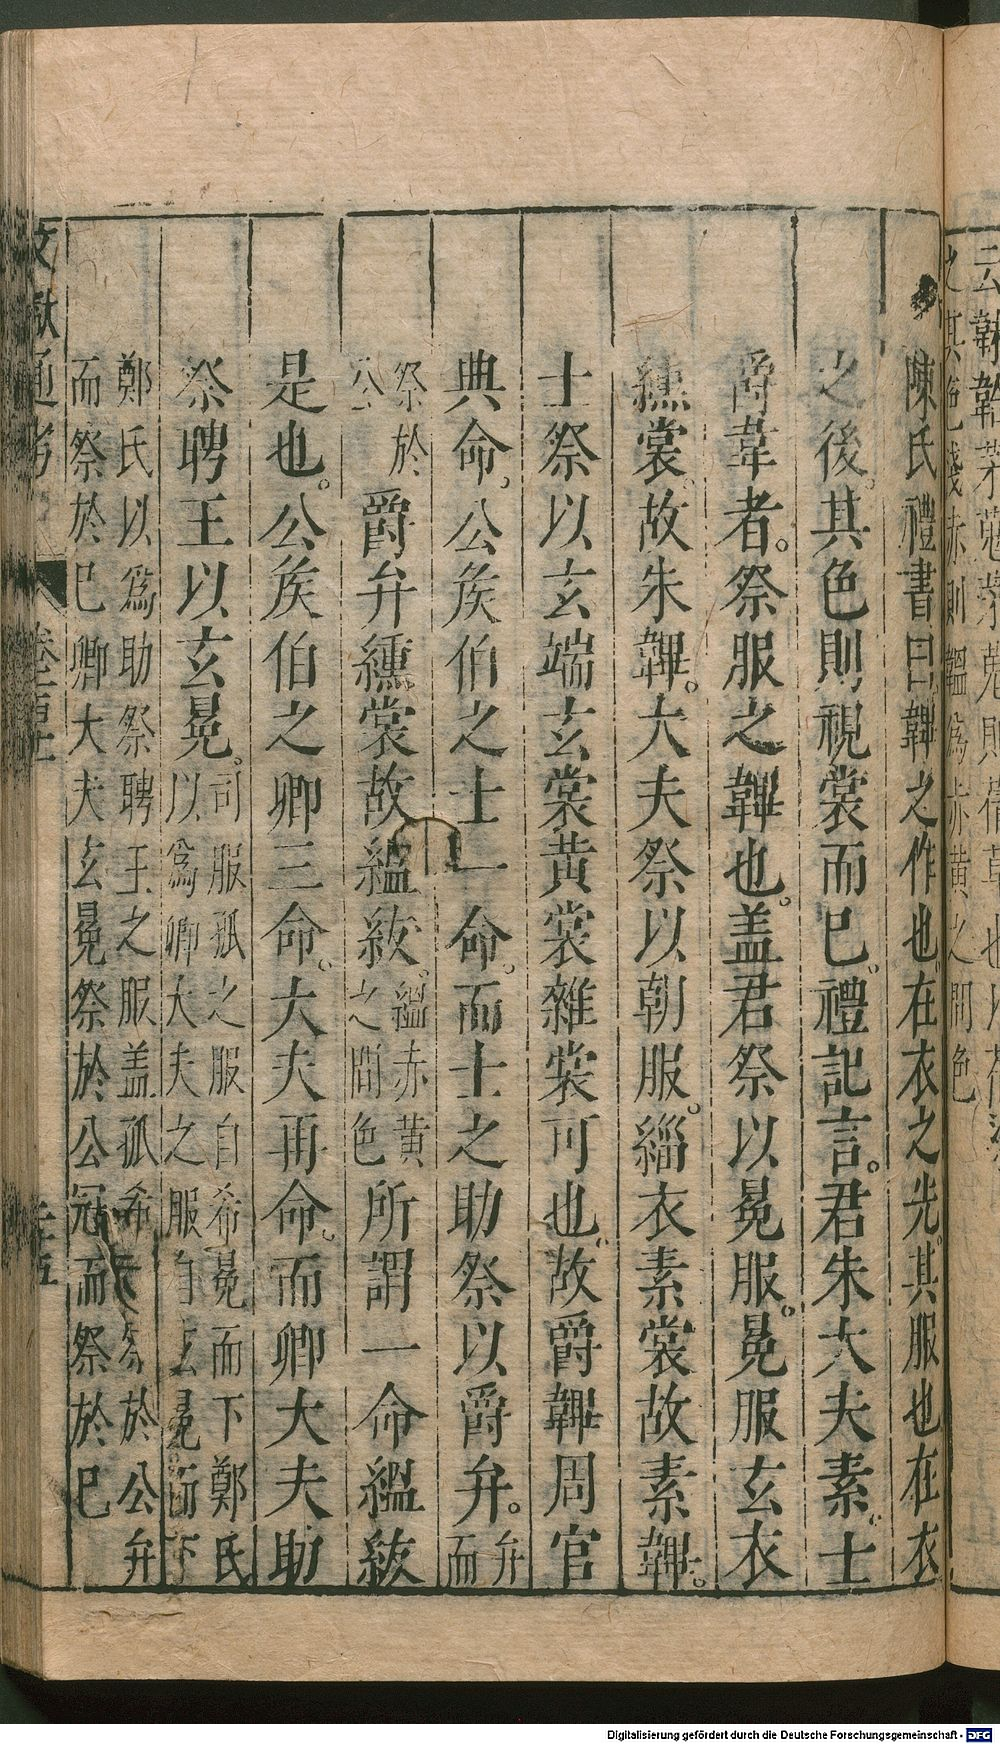 云韍韐茅蒐染
之其色淺赤則韞爲赤黃之間色
陳氏禮書曰韠之作也在衣之先其服也在衣
之後。其色則視裳而已。禮記言。君朱大夫素。士
爵韋者。祭服之韠也。盖君祭以冕服。冕服玄衣
纁裳。故朱韠。大夫祭以朝服。緇衣素裳故素韠。
士祭以玄端玄裳黃裳雜裳可也。故爵韠周官
典命。公矦伯之士一命。而士之助祭以爵弁。弁
而
祭於
公
爵弁纁裳故緼紱。緼赤黃
之間色
所謂一命緼紱
是也。公矦伯之卿三命。大夫再命。而卿大夫助
祭聘王以玄冕。司服孤之服自希冕而下鄭氏
以爲卿大夫之服自玄冕而下
鄭氏以爲助祭聘王之服盖孤希冕祭於公弁
而祭於巳卿大夫玄冕祭於公冠而祭於巳
文獻通考
Digitalisierung gefördert durch die Deutsche Forschungsgemeinschaft - DFG